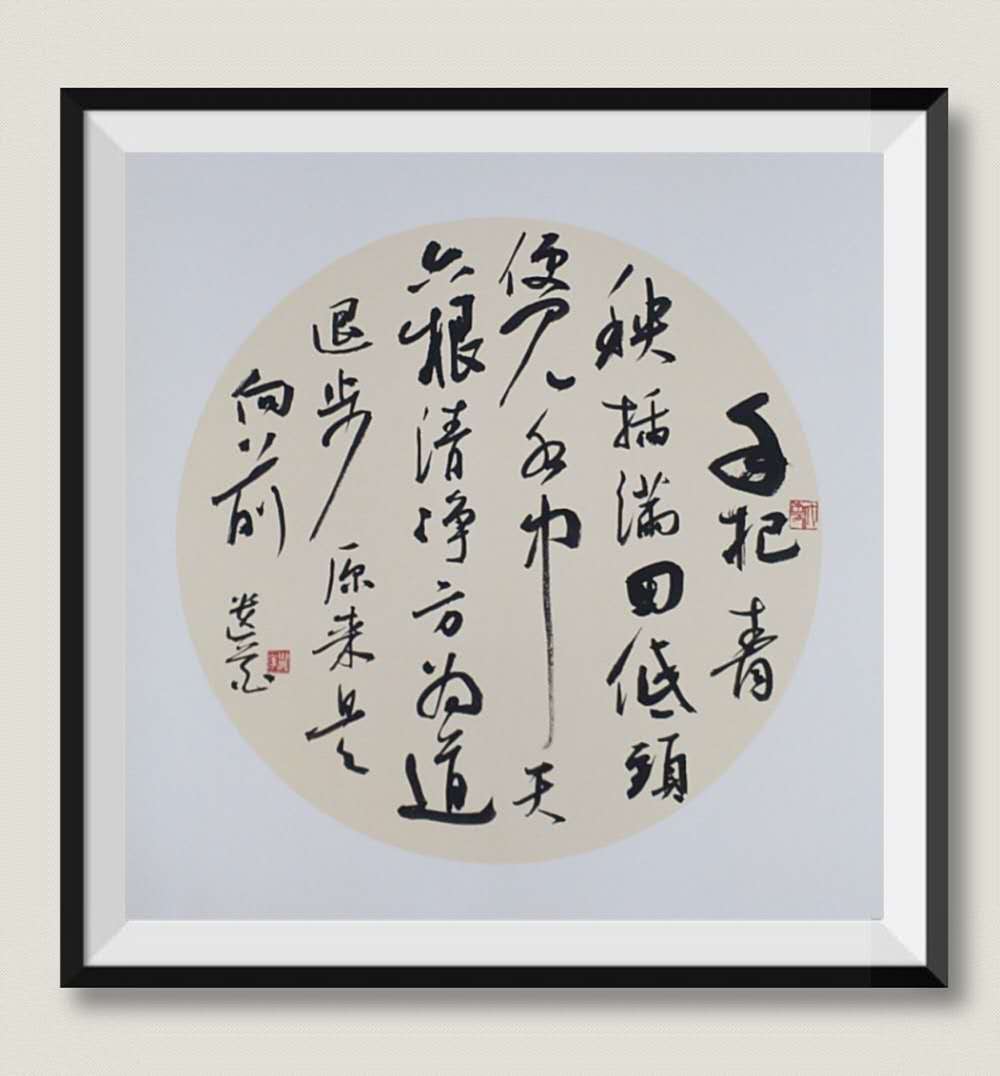 手把青
秧插满田低頭
便見水中天
六根清净方为道
退步原来是
向前